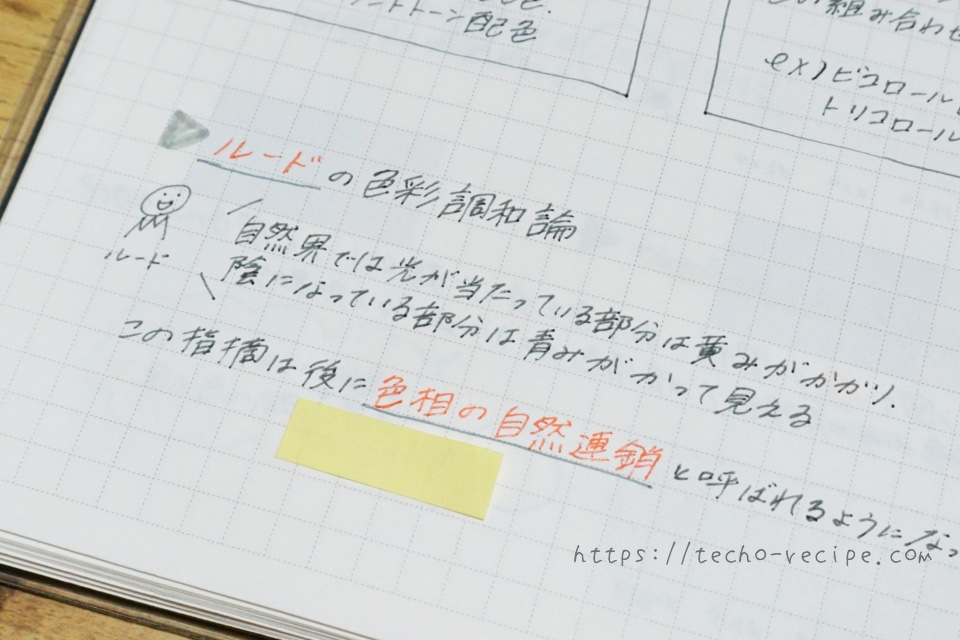 トーン配色
の組み合わせ
ex)ビコロール
トリコロール
ルードの色彩調和論
ルード
自然界では光が当たっている部分は黄みがかかり、
陰になっている部分は青みがかって見える
この指摘は後に色相の自然連鎖と呼ばれるようになっ
https://techo-recipe.com